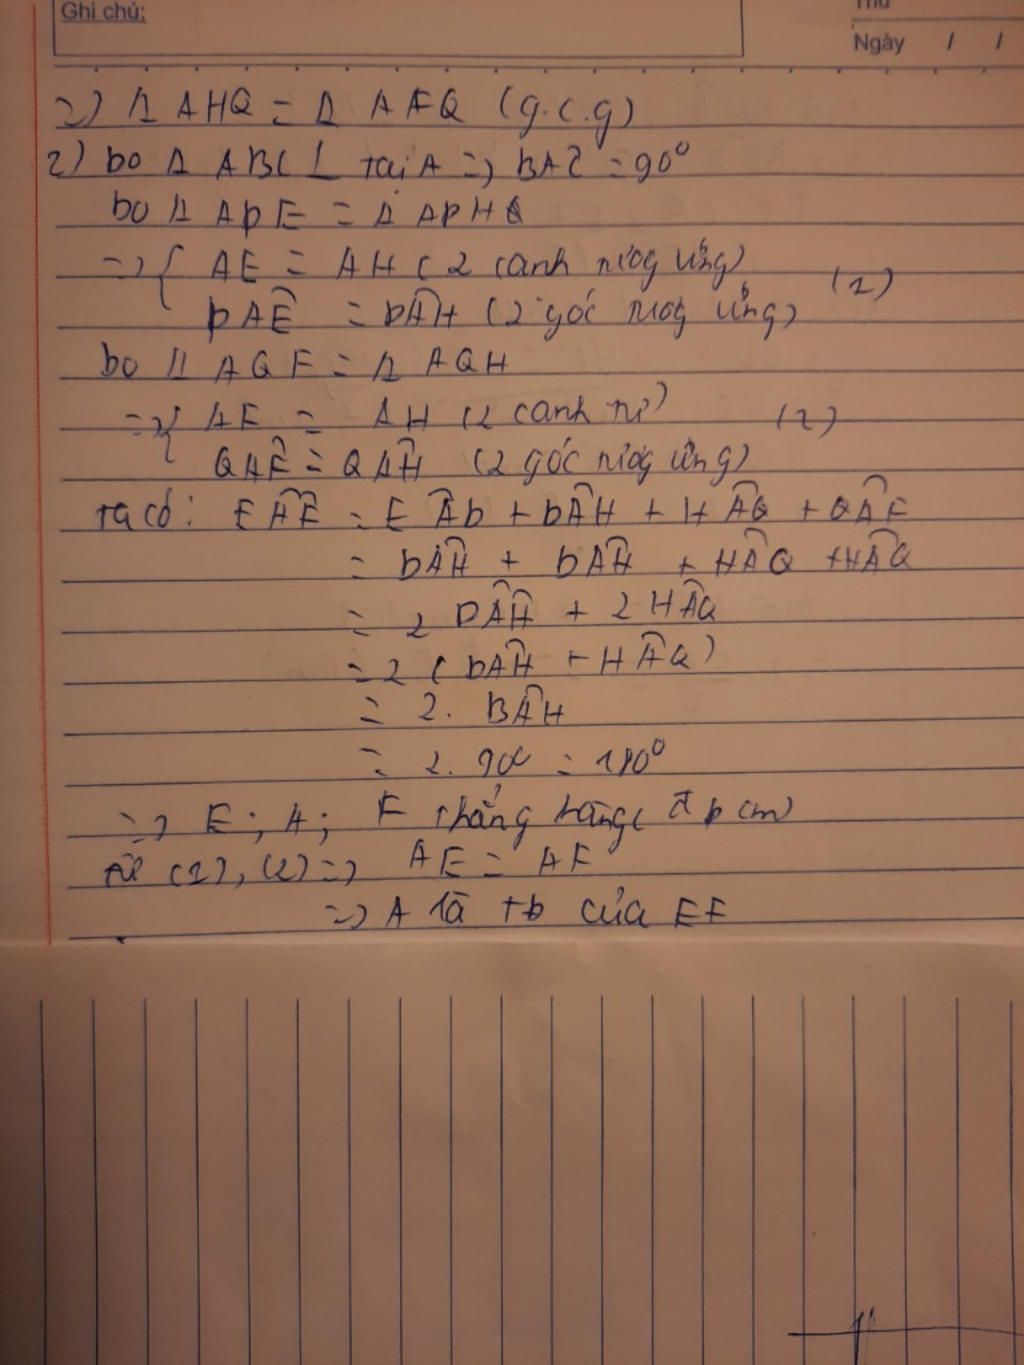 Ghi chú:
Thứ
Ngày / /
=> Δ AHQ = Δ AFQ (g.c.g)
2) Do Δ ABC ⊥ tại A => BAC = 90°
Do Δ APE = Δ APH
=> { AE = AH (2 cạnh tương ứng)
PAE = PAH (2 góc tương ứng) (1)
Do Δ AQF = Δ AQH
=> { AF = AH (2 cạnh tư)
QAF = QAH (2 góc tương ứng) (2)
Ta có: EAF = EAP + PAH + HAQ + QAF
= PAH + PAH + HAQ + HAQ
= 2 PAH + 2 HAQ
= 2 (PAH + HAQ)
= 2. BAH
= 2. 90 = 180°
=> E; A; F thẳng hàng đpcm
Từ (1), (2) => AE = AF
=> A là tđ của EF